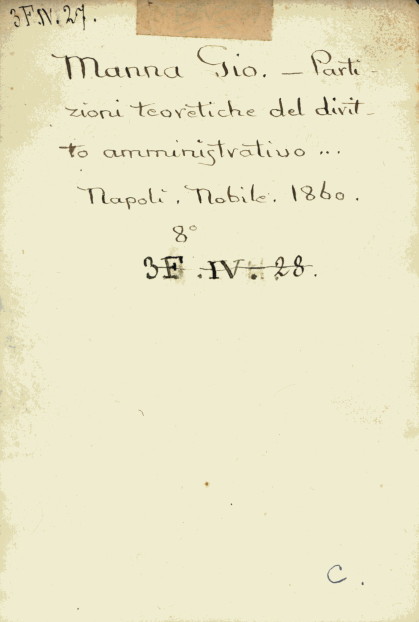 3F.IV.27.
Manna Gio. – Parti-
zioni teoretiche del dirit-
to amministrativo ...
Napoli. Nobile. 1860.
8°
3F.IV.28.
C.